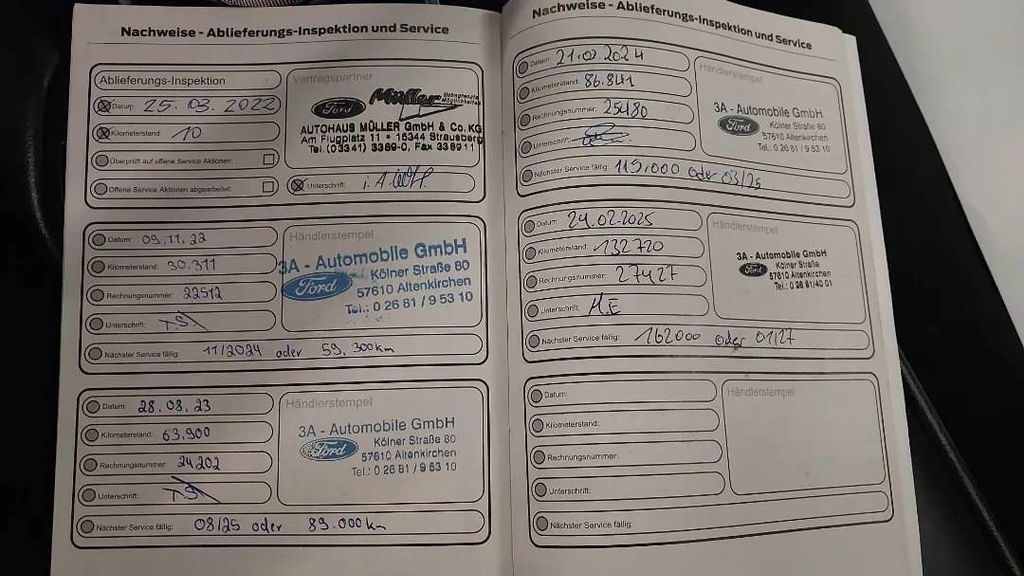 Nachweise - Ablieferungs-Inspektion und Service
Ablieferungs-Inspektion
Datum: 25.03.2022
Kilometerstand: 10
Überprüft auf offene Service Aktionen:
Offene Service Aktionen abgearbeitet:
Vertragspartner
Ford Müller
AUTOHAUS MÜLLER GmbH & Co. KG
Am Flugplatz 11 • 15344 Strausberg
Tel. (03341) 3369-0, Fax 338911
Unterschrift: i.A.
Datum: 09.11.22
Kilometerstand: 30.311
Rechnungsnummer: 22512
Unterschrift: T.S
Händlerstempel
3A - Automobile GmbH
Ford Kölner Straße 80
57610 Altenkirchen
Tel.: 0 26 81 / 9 53 10
Nächster Service fällig: 11/2024 oder 59.300km
Datum: 28.08.23
Kilometerstand: 63.900
Rechnungsnummer: 24202
Unterschrift: T.S
Händlerstempel
3A - Automobile GmbH
Ford Kölner Straße 80
57610 Altenkirchen
Tel.: 0 26 81 / 9 53 10
Nächster Service fällig: 08/25 oder 89.000km
Nachweise - Ablieferungs-Inspektion und Service
Datum: 21.02.2024
Kilometerstand: 86.841
Rechnungsnummer: 25480
Unterschrift:
Händlerstempel
3A - Automobile GmbH
Ford Kölner Straße 80
57610 Altenkirchen
Tel.: 0 26 81 / 9 53 10
Nächster Service fällig: 119.000 oder 03/25
Datum: 24.02.2025
Kilometerstand: 132720
Rechnungsnummer: 27427
Unterschrift: M.E
Händlerstempel
3A - Automobile GmbH
Ford Kölner Straße
57610 Altenkirchen
Tel.: 0 26 81/40 01
Nächster Service fällig: 162000 oder 01/27
Datum:
Kilometerstand:
Rechnungsnummer:
Unterschrift:
Händlerstempel
Nächster Service fällig: